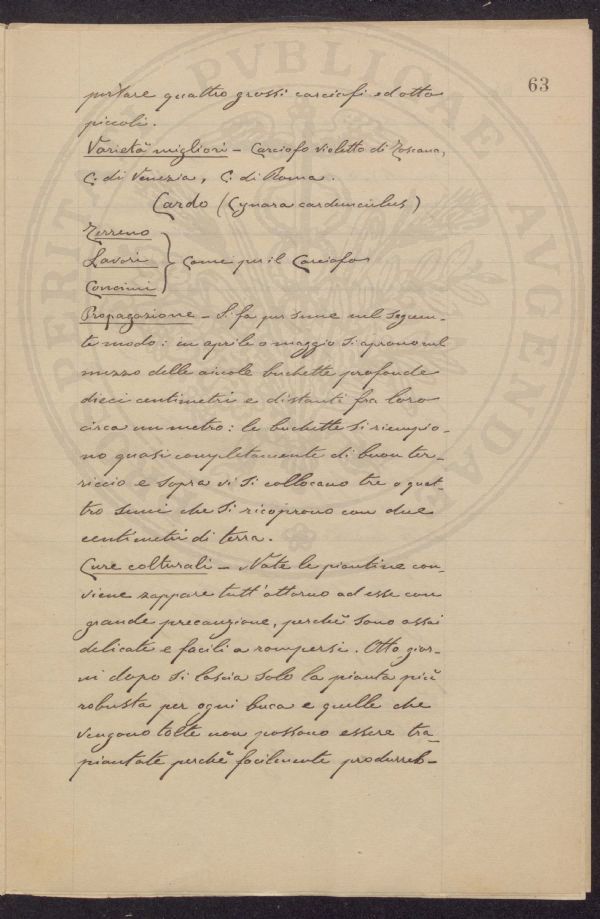 63
portare quattro grossi carciofi ed otto
piccoli.
Varietà migliori - Carciofo violetto di Toscana,
C. di Venezia, C. di Roma.
Cardo (Cynara cardunculus)
Terreno
Lavori } Come per il Carciofo
Concimi
Propagazione - Si fa per seme nel seguen-
te modo: in aprile o maggio si aprono nel
mezzo delle aiuole buchette profonde
dieci centimetri e distanti fra loro
circa un metro: le buchette si riempio-
no quasi completamente di buon ter-
riccio e sopra vi si collocano tre o quat-
tro semi che si ricoprono con due
centimetri di terra.
Cure colturali - Nate le piantine con-
viene zappare tutt'attorno ad esse con
grande precauzione, perchè sono assai
delicate e facili a rompersi. Otto gior-
ni dopo si lascia solo la pianta più
robusta per ogni buca e quelle che
vengono tolte non possono essere tra-
piantate perchè facilmente produrreb-